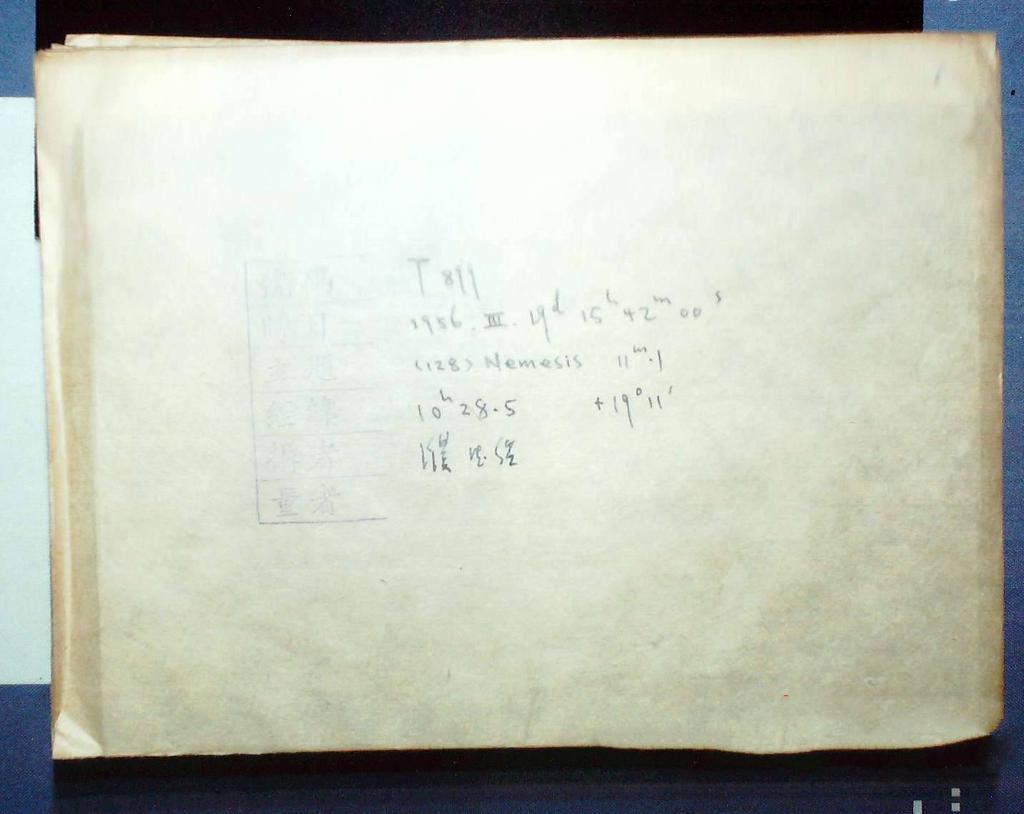 號碼 T 811
時日 1956. III. 19ᵈ 15ʰ 42ᵐ 00ˢ
主題 (128) Nemesis 11ᵐ.1
經緯 10ʰ 28.5 +19° 11'
攝者
量者